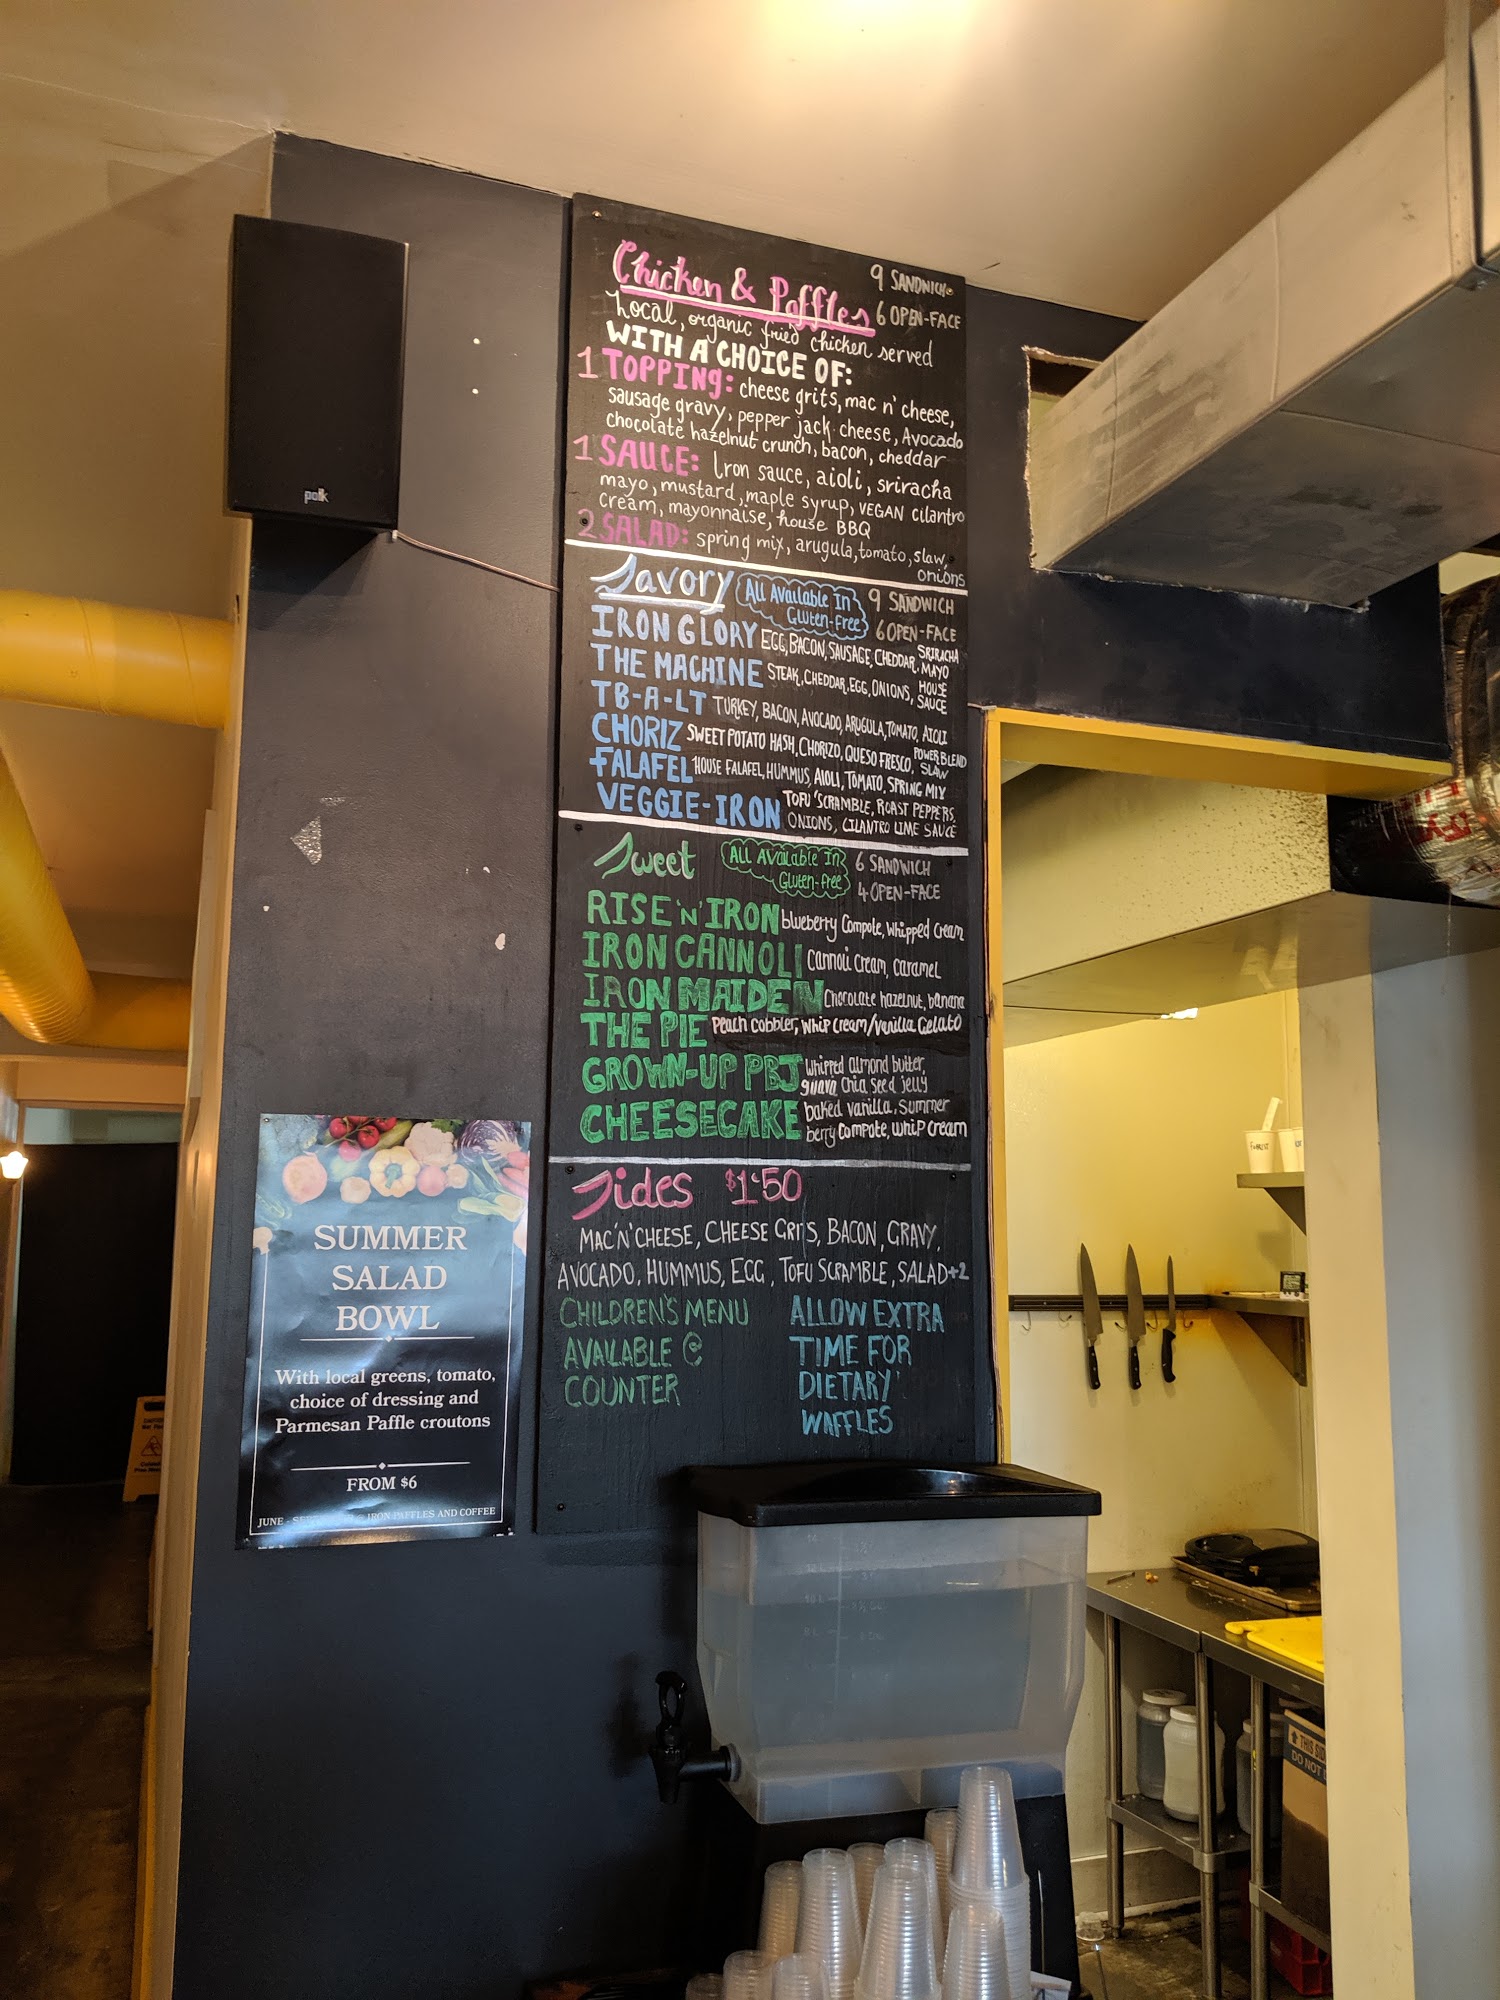 Chicken & Paffles
9 SANDWICH
6 OPEN-FACE
Local, organic fried chicken served
WITH A CHOICE OF:
1 TOPPING: cheese grits, mac n' cheese,
sausage gravy, pepper jack cheese, Avocado
chocolate hazelnut crunch, bacon, cheddar
1 SAUCE: Iron sauce, aioli, sriracha
mayo, mustard, maple syrup, VEGAN cilantro
cream, mayonnaise, house BBQ
2 SALAD: spring mix, arugula, tomato, slaw,
onions
Savory
All Available In
Gluten-free
9 SANDWICH
6 OPEN-FACE
IRON GLORY EGG, BACON, SAUSAGE, CHEDDAR, SRIRACHA
MAYO
THE MACHINE STEAK, CHEDDAR, EGG, ONIONS, HOUSE
SAUCE
TB-A-LT TURKEY, BACON, AVOCADO, ARUGULA, TOMATO, AIOLI
CHORIZ SWEET POTATO HASH, CHORIZO, QUESO FRESCO, POWER BLEND
SLAW
FALAFEL HOUSE FALAFEL, HUMMUS, AIOLI, TOMATO, SPRING MIX
VEGGIE-IRON TOFU 'SCRAMBLE, ROAST PEPPERS,
ONIONS, CILANTRO LIME SAUCE
Sweet
ALL AVAilable In
Gluten-free
6 SANDWICH
4 OPEN-FACE
RISE 'N' IRON blueberry Compote, whipped cream
IRON CANNOLI Cannoli Cream, caramel
IRON MAIDEN Chocolate hazelnut, banana
THE PIE Peach Cobbler, whip cream/vanilla gelato
GROWN-UP PBJ whipped almond butter,
guava chia seed jelly
CHEESECAKE baked vanilla, summer
berry compote, whip cream
Sides $1.50
MAC'N'CHEESE, CHEESE GRITS, BACON, GRAVY,
AVOCADO, HUMMUS, EGG, TOFU SCRAMBLE, SALAD+2
CHILDREN'S MENU
AVAILABLE @
COUNTER
ALLOW EXTRA
TIME FOR
DIETARY
WAFFLES
polk
SUMMER
SALAD
BOWL
With local greens, tomato,
choice of dressing and
Parmesan Paffle croutons
FROM $6
JUNE - @ IRON PAFFLES AND COFFEE
THIS
DO NOT